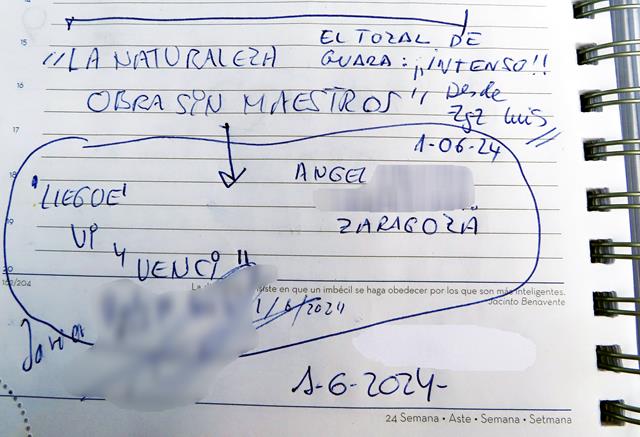 15
EL TOZAL DE
"LA NATURALEZA GUARA: ¡¡INTENSO!!
16
OBRA SIN MAESTROS" Desde
Zgz Luis
17
1-06-24
18
ANGEL
LLEGUE'
ZARAGOZA
19
Vi
y VENCI !!
20
162/204
La siste en que un imbécil se haga obedecer por los que son más inteligentes.
Jacinto Benavente
1/6/2024
Javier
1-6-2024-
24 Semana • Aste • Semana • Setmana